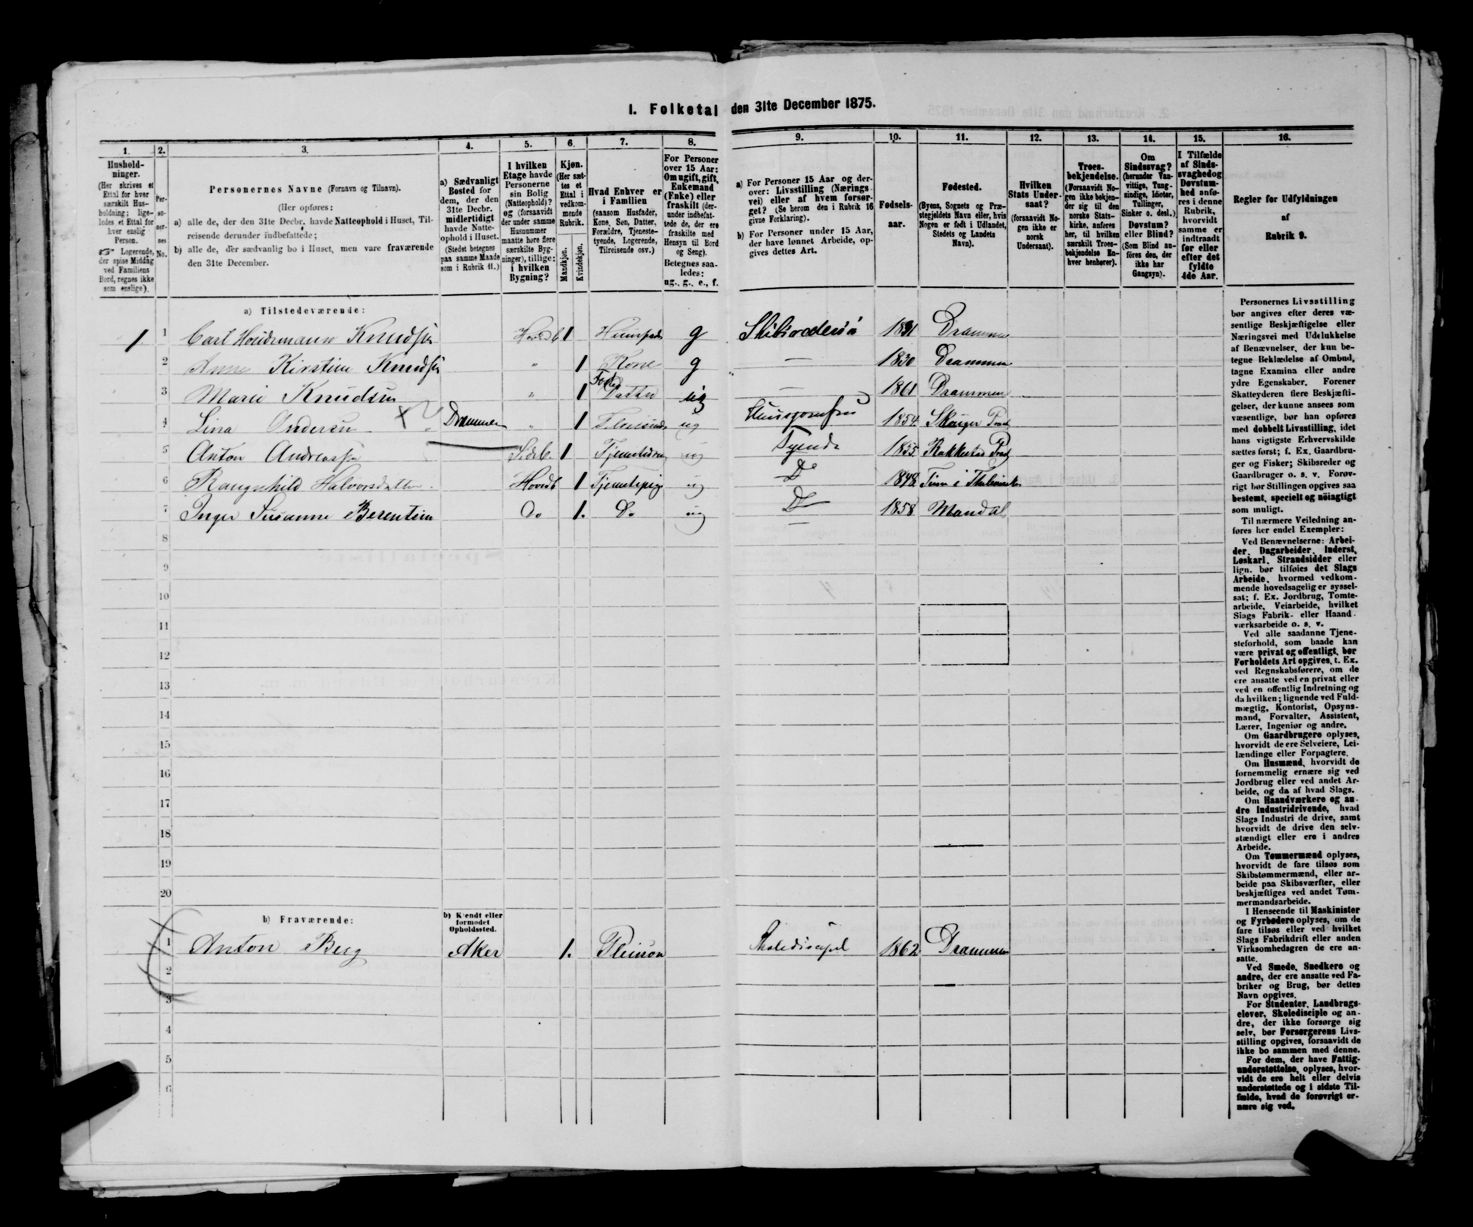 1. Folketal den 31te December 1875.
1.
Hushold-
ninger.
(Her skrives et
Ettal for hver
særskilt Hus-
holdning; lige-
ledes et Ettal for
hver enslig
Person.
☞ Logerende,
der spise Middag
ved Familiens
Bord, regnes ikke
som enslige).
2.
Per-
so-
ner-
nes
No.
3.
Personernes Navne (Fornavn og Tilnavn).
(Her opføres:
a) alle de, der den 31te Decbr. havde Natteophold i Huset, Til-
reisende derunder indbefattede;
b) alle de, der sædvanlig bo i Huset, men vare fraværende
den 31te December.
4.
a) Sædvanligt
Bosted for
dem, der den
31te Decbr.
midlertidigt
havde Natte-
ophold i Huset.
(Stedet betegnes
paa samme Maade
som i Rubrik 11.)
5.
I hvilken
Etage havde
Personerne
sin Bolig
(Natteophold)?
og (forsaavidt
der under samme
Husnummer
maatte høre flere
særskilte Byg-
ninger), tillige:
i hvilken
Bygning?
6.
Kjøn.
(Her sæt-
tes et
Ettal i
vedkom-
mende
Rubrik.
Mandkjøn.
Kvindekjøn.
7.
Hvad Enhver er
i Familien
(saasom Husfader,
Kone, Søn, Datter,
Forældre, Tjeneste-
tyende, Logerende,
Tilreisende osv.)
8.
For Personer
over 15 Aar:
Om ugift, gift,
Enkemand
(Enke) eller
fraskilt (der-
under indbefat-
tede de, der ere
fraskilte med
Hensyn til Bord
og Seng).
Betegnes saa-
ledes:
ug., g., e., f.
9.
a) For Personer 15 Aar og der-
over: Livsstilling (Nærings-
vei) eller af hvem forsør-
get? (Se herom den i Rubrik 16
givne Forklaring).
b) For Personer under 15 Aar,
der have lønnet Arbeide, op-
gives dettes Art.
10.
Fødsels-
aar.
11.
Fødested.
(Byens, Sognets og Præ-
stegjeldets Navn eller, hvis
Nogen er født i Udlandet,
Stedets og Landets
Navn).
12.
Hvilken
Stats Under-
saat?
(forsaavidt No-
gen ikke er
norsk
Undersaat).
13.
Troes-
bekjendelse.
(Forsaavidt No-
gen ikke bekjen-
der sig til den
norske Stats-
kirke, anføres
her, til hvilken
særskilt Troes-
bekjendelse En-
hver henhører).
14.
Om
Sindssvag?
(herunder Van-
vittige, Tung-
sindige, Idioter,
Tullinger,
Sinker o. desl.)
Døvstum?
eller Blind?
(Som Blind an-
føres den, der
ikke har
Gangsyn).
15.
I Tilfælde
af Sinds-
svaghed og
Døvstum-
hed anfø-
res i denne
Rubrik,
hvorvidt
samme er
indtraadt
før eller
efter det
fyldte
4de Aar.
16.
Regler for Udfyldningen
af
Rubrik 9.
a) Tilstedeværende:
1 1 Carl Knudsen 1 g 1831 Drammen
2 Anne Kirstine Knudsen " 1 Kone g — 1830 Drammen
3 Marie Knudsen " 1 Datter ug — 1861 Drammen
4 Lina Andersen Drammen " 1 ug 1854
5 Anton 1 ug Tyende 1855
6 Halvorsdatter 1 Tjenestepige ug Do
7 Inger Susanne Berentsen Do 1. Do ug Do 1858 Mandal
8
9
10
11
12
13
14
15
16
17
18
19
20
b) Fraværende:
b) Kjendt eller
formodet
Opholdssted.
1 Anton Berg Aker 1. Pleiesøn Skolediscipel 1862 Drammen
2
3
4
5
6
Personernes Livsstilling
bør angives efter deres væ-
sentlige Beskjæftigelse eller
Næringsvei med Udelukkelse
af Benævnelser, der kun be-
tegne Beklædelse af Ombud,
tagne Examina eller andre
ydre Egenskaber. Forener
Skatteyderen flere Beskjæfti-
gelser, der kunne ansees som
væsentlige, bør han opføres
med dobbelt Livsstilling, idet
hans vigtigste Erhvervskilde
sættes først; f. Ex. Gaardbru-
ger og Fisker; Skibsreder og
Gaardbruger o. s. v. Forøv-
rigt bør Stillingen opgives saa
bestemt, specielt og nøiagtigt
som muligt.
Til nærmere Veiledning an-
føres her endel Exempler:
Ved Benævnelserne: Arbei-
der, Dagarbeider, Inderst,
Løskarl, Strandsidder eller
lign. bør tilføies det Slags
Arbeide, hvormed vedkom-
mende hovedsagelig er syssel-
sat; f. Ex. Jordbrug, Tomte-
arbeide, Veiarbeide, hvilket
Slags Fabrik- eller Haand-
værksarbeide o. s. v.
Ved alle saadanne Tjene-
steforhold, som baade kan
være privat og offentligt, bør
Forholdets Art opgives, t. Ex.
ved Regnskabsførere, om de
ere ansatte ved en privat eller
ved en offentlig Indretning og
da hvilken; lignende ved Fuld-
mægtig, Kontorist, Opsyns-
mand, Forvalter, Assistent,
Lærer, Ingeniør og andre.
Om Gaardbrugere oplyses,
hvorvidt de ere Selveiere, Lei-
lændinge eller Forpagtere.
Om Husmænd, hvorvidt de
fornemmelig ernære sig ved
Jordbrug eller ved andet Ar-
beide, og da af hvad Slags.
Om Haandværkere og an-
dre Industridrivende, hvad
Slags Industri de drive, samt
hvorvidt de drive den selv-
stændigt eller ere i andres
Arbeide.
Om Tømmermænd oplyses,
hvorvidt de fare tilsøs som
Skibstømmermænd, eller ar-
beide paa Skibsværfter, eller
beskjæftiges ved andet Tøm-
mermandsarbeide.
I Henseende til Maskinister
og Fyrbødere oplyses, om de
fare tilsøs eller ved hvilket
Slags Fabrikdrift eller anden
Virksomhedsgren de ere an-
satte.
Ved Smede, Snedkere og
andre, der ere ansatte ved Fa-
briker og Brug, bør dettes
Navn opgives.
For Studenter, Landbrugs-
elever, Skoledisciple og an-
dre, der ikke forsørge sig
selv, bør Forsørgerens Livs-
stilling opgives, forsaavidt de
ikke bo sammen med denne.
For dem, der have Fattig-
understøttelse, oplyses, hvor-
vidt de ere helt eller delvis
understøttede og i sidste Til-
fælde, hvad de forøvrigt er-
nære sig ved.